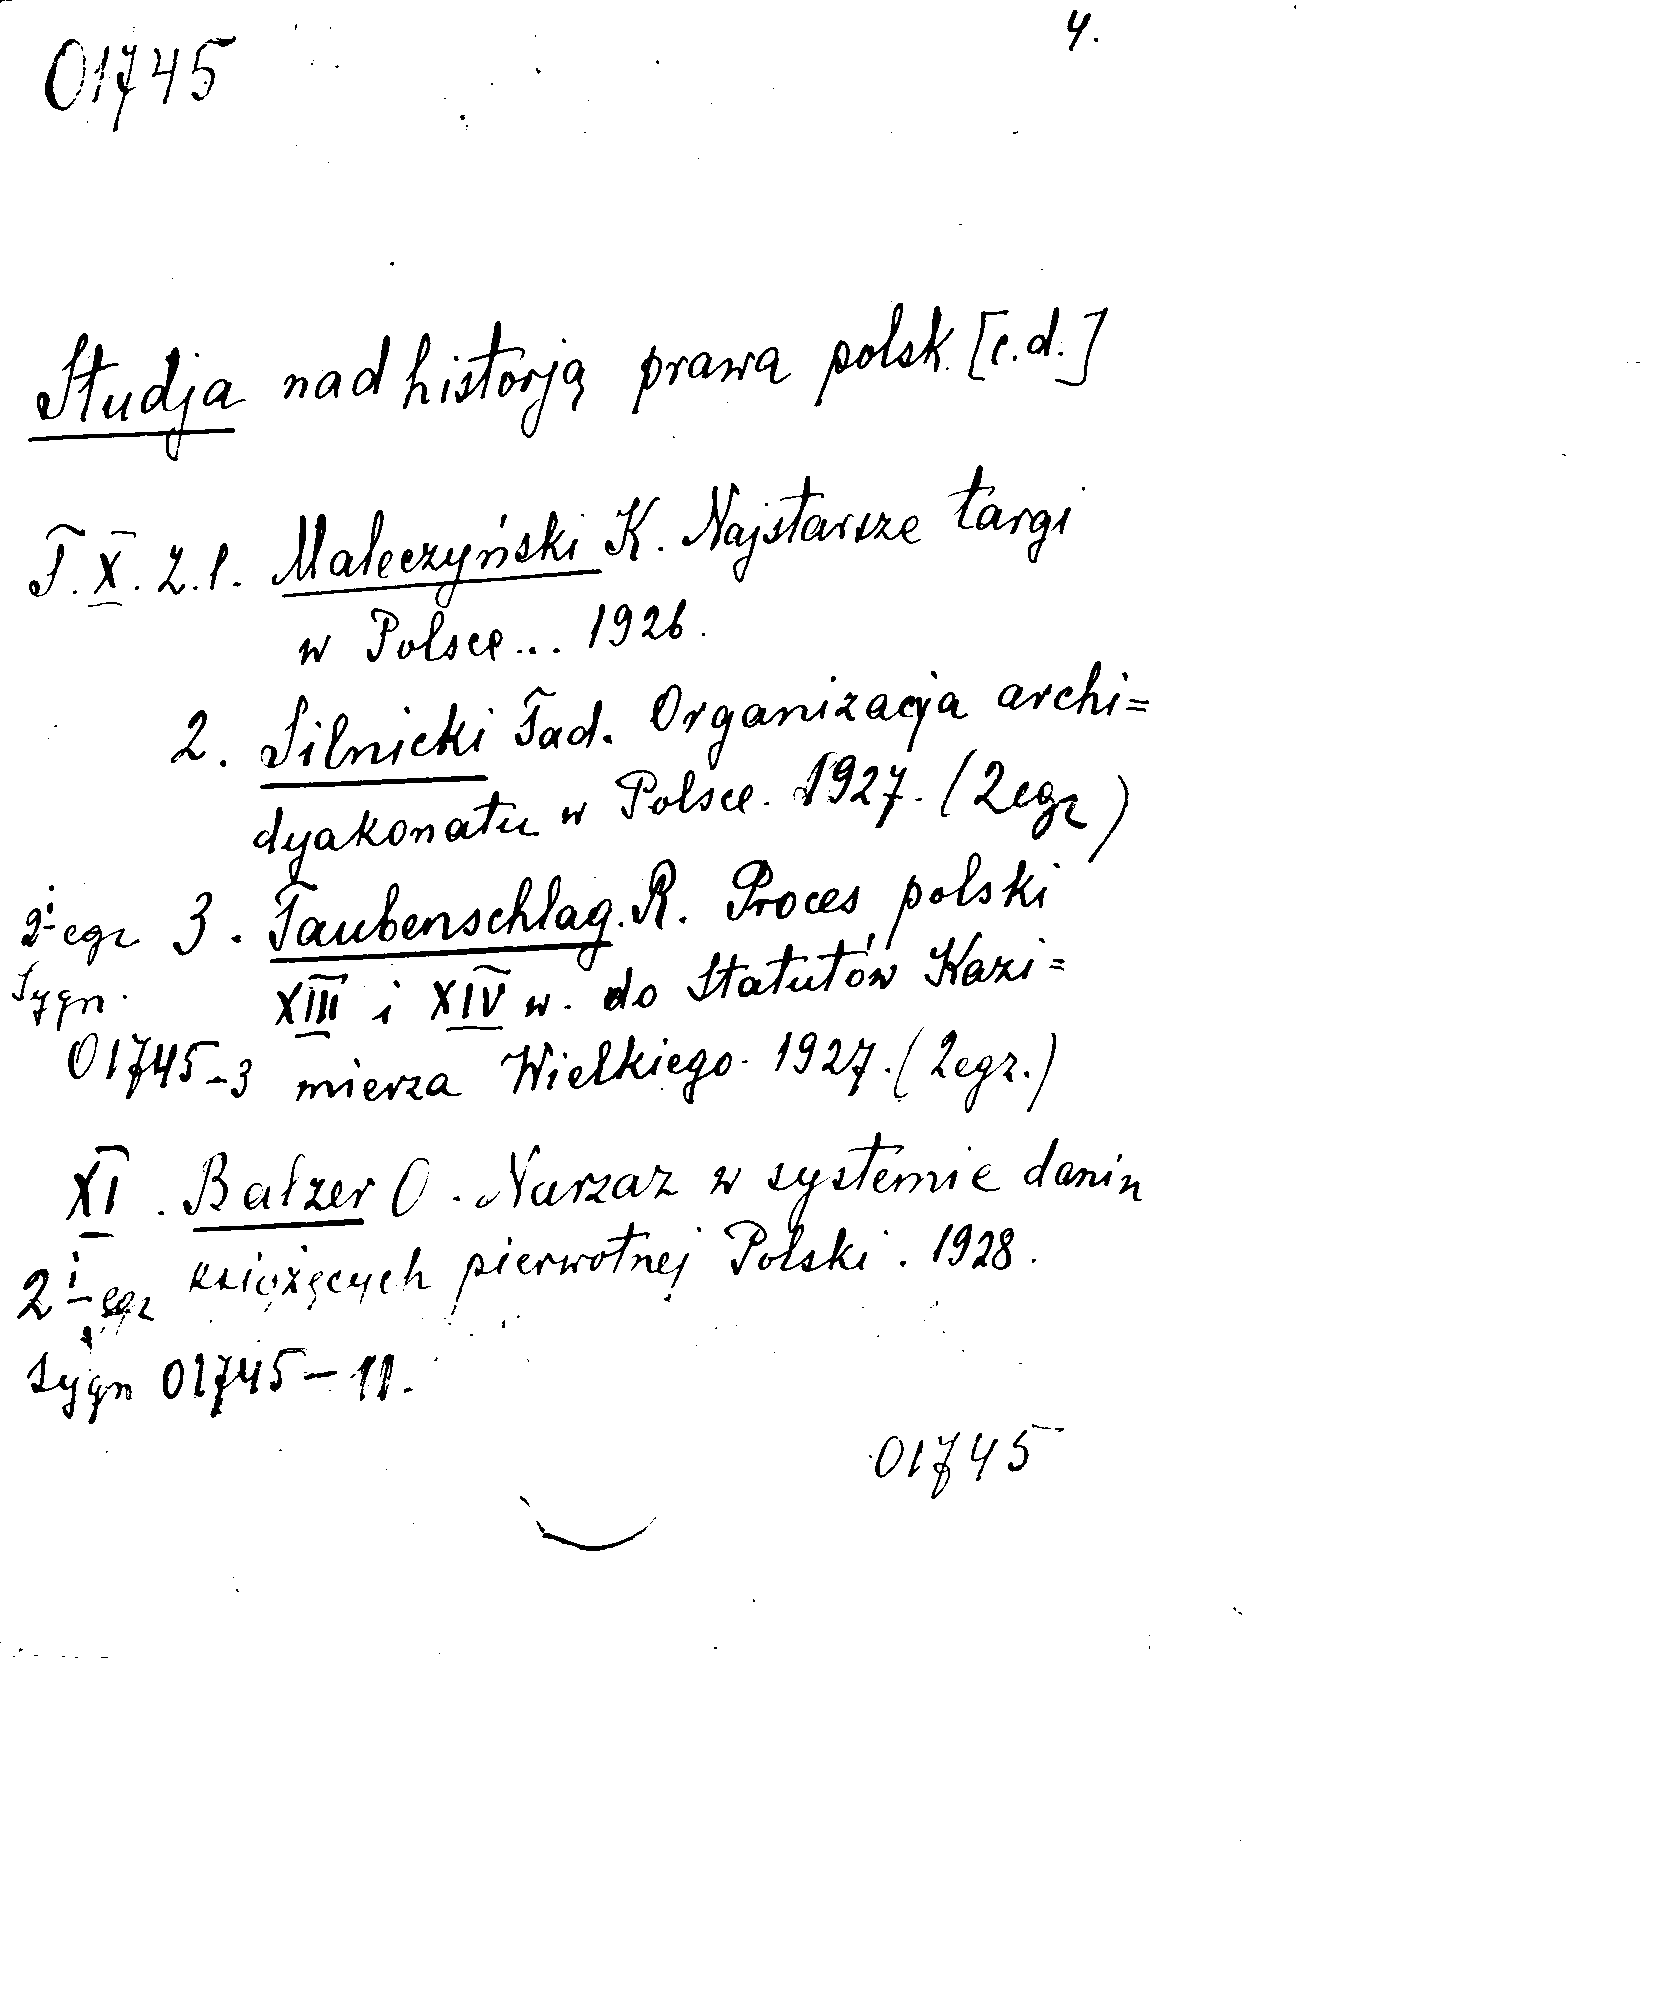 01745
4.
Studja nad historją prawa polsk. [c.d.]
T. X. z.1. Maleczyński K. Najstarsze targi
w Polsce... 1926.
2. Silnicki Tad. Organizacja archi=
dyakonatu w Polsce. 1927. (2egz)
2i egz 3. Taubenschlag. R. Proces polski
Sygn. XIII i XIV w. do Statutów Kazi=
01745-3 mierza Wielkiego. 1927. (2egz.)
XI. Balzer O. Narzaz w systemie danin
książęcych pierwotnej Polski. 1928.
2i egz
sygn 01745-11.
01745